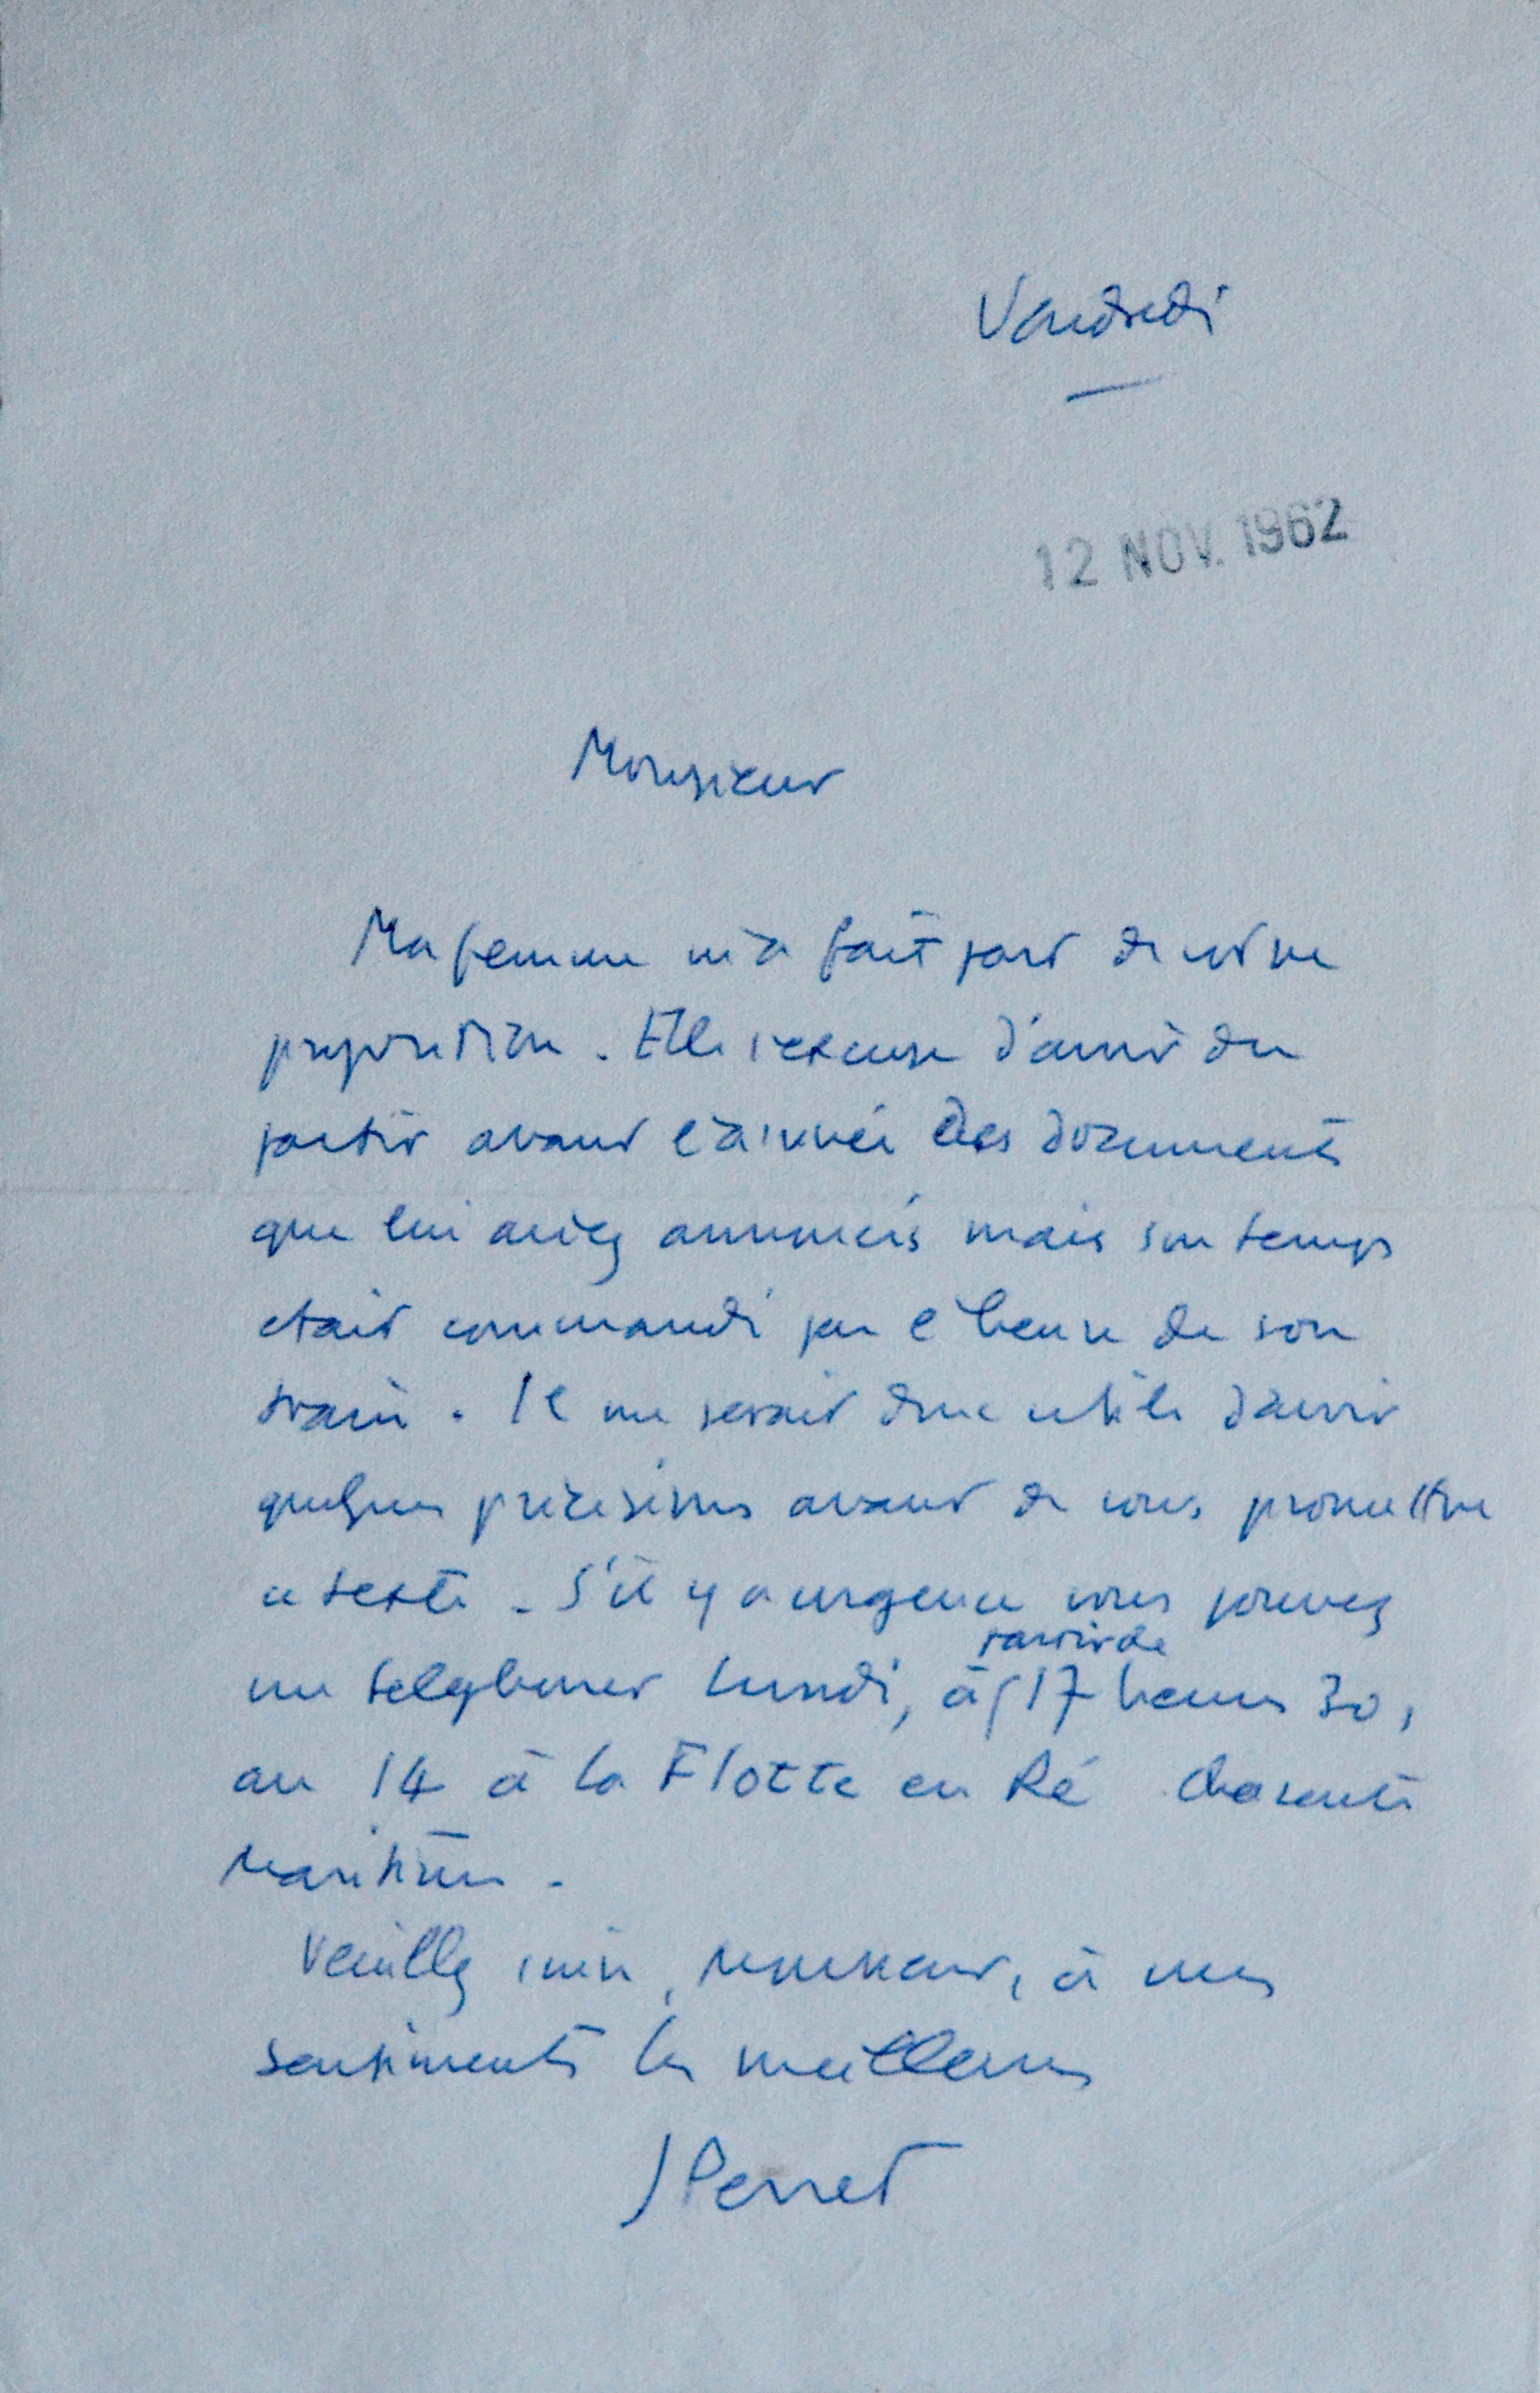 Vendredi
12 NOV. 1962
Monsieur
Ma femme m'a fait part de votre
proposition. Elle s'excuse d'avoir du
partir avant l'arrivée des documents
que lui aviez annoncés mais son temps
etait commandé par l'heure de son
train. Il me serait donc utile d'avoir
quelques précisions avant de vous promettre
ce texte. S'il y a urgence vous pouvez
me telephoner lundi, à partir de 17 heures 30,
au 14 à la Flotte en Ré Charente
Maritime.
Veuillez croire, Monsieur, à mes
sentiments les meilleurs
J Perret